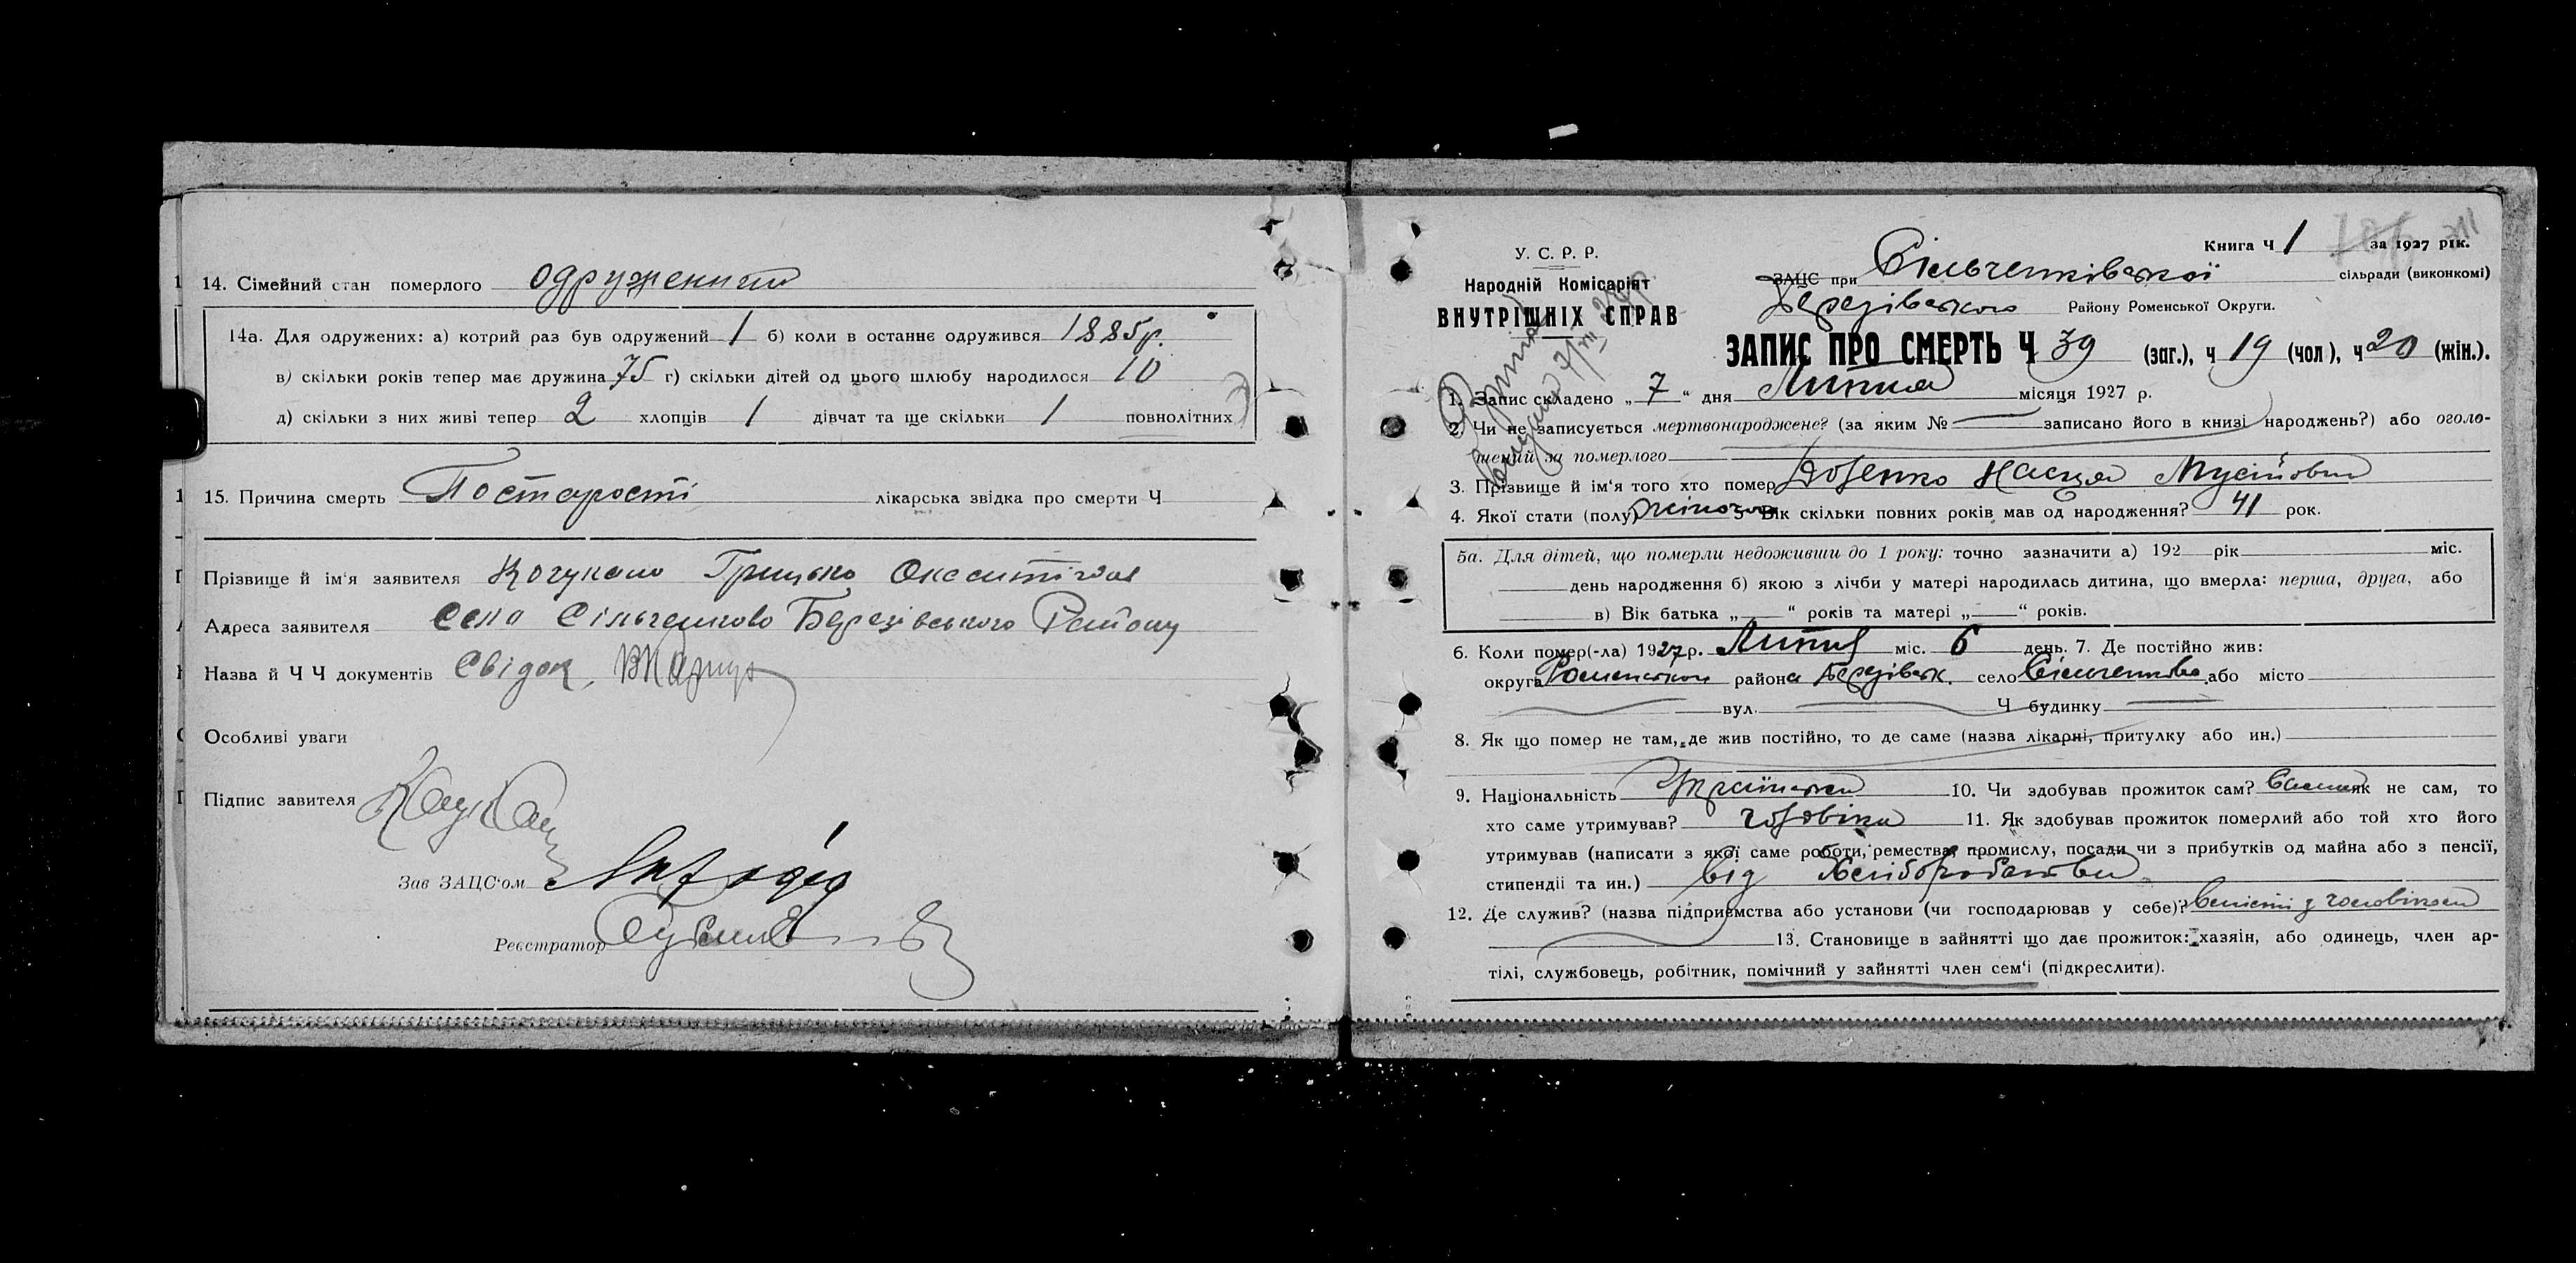 14. Сімейний стан померлого одружений
14а. Для одружених: а) котрий раз був одружений 1 б) коли в останнє одружився 1885р.
в) скільки років тепер має дружина 75 г) скільки дітей од цього шлюбу народилося 10
д) скільки з них живі тепер 2 хлопців 1 дівчат та ще скільки 1 повнолітних
15. Причина смерть По старості лікарська звідка про смерти Ч
Прізвище й ім'я заявителя Грицько
Адреса заявителя Село Сільченково Березівського Району
Назва й Ч Ч документів Свідок
Особливі уваги
Підпис завителя
Зав ЗАЦС'ом
Реєстратор
Книга Ч 1 за 1927 рік.
У. С. Р. Р.
Народній Комісаріят
ВНУТРІШНІХ СПРАВ
ЗАЦС при Сільченківської сільради (виконкомі)
Березівського Району Роменської Округи.
ЗАПИС ПРО СМЕРТЬ Ч 39 (заг.), ч 19 (чол), ч 20 (жін.).
1. Запис складено „ 7 " дня Липня місяця 1927 р.
2. Чи не записується мертвонароджене? (за яким № записано його в книзі народжень?) або оголо-
шений за померлого
3. Прізвище й ім'я того хто помер Настя
4. Якої стати (полу) жіночої 5 Вік скільки повних років мав од народження? 41 рок.
5а. Для дітей, що померли недоживши до 1 року: точно зазначити а) 192 рік міс.
день народження б) якою з лічби у матері народилась дитина, що вмерла: перша, друга, або
в) Вік батька „ " років та матері „ " років.
6. Коли помер(-ла) 1927р. Липня міс. 6 день. 7. Де постійно жив:
округа Роменської района Березівськ. село Сільченково або місто
вул. Ч будинку
8. Як що помер не там, де жив постійно, то де саме (назва лікарні, притулку або ин.)
9. Національність Українка 10. Чи здобував прожиток сам? як не сам, то
хто саме утримував? чоловіка 11. Як здобував прожиток померлий або той хто його
утримував (написати з якої саме роботи, ремества, промислу, посади чи з прибутків од майна або з пенсії,
стипендії та ин.) від Хліборобства
12. Де служив? (назва підприємства або установи (чи господарював у себе)? з чоловіком
13. Становище в зайнятті що дає прожиток: хазяін, або одинець, член ар-
тілі, службовець, робітник, помічний у зайнятті член сем'і (підкреслити).